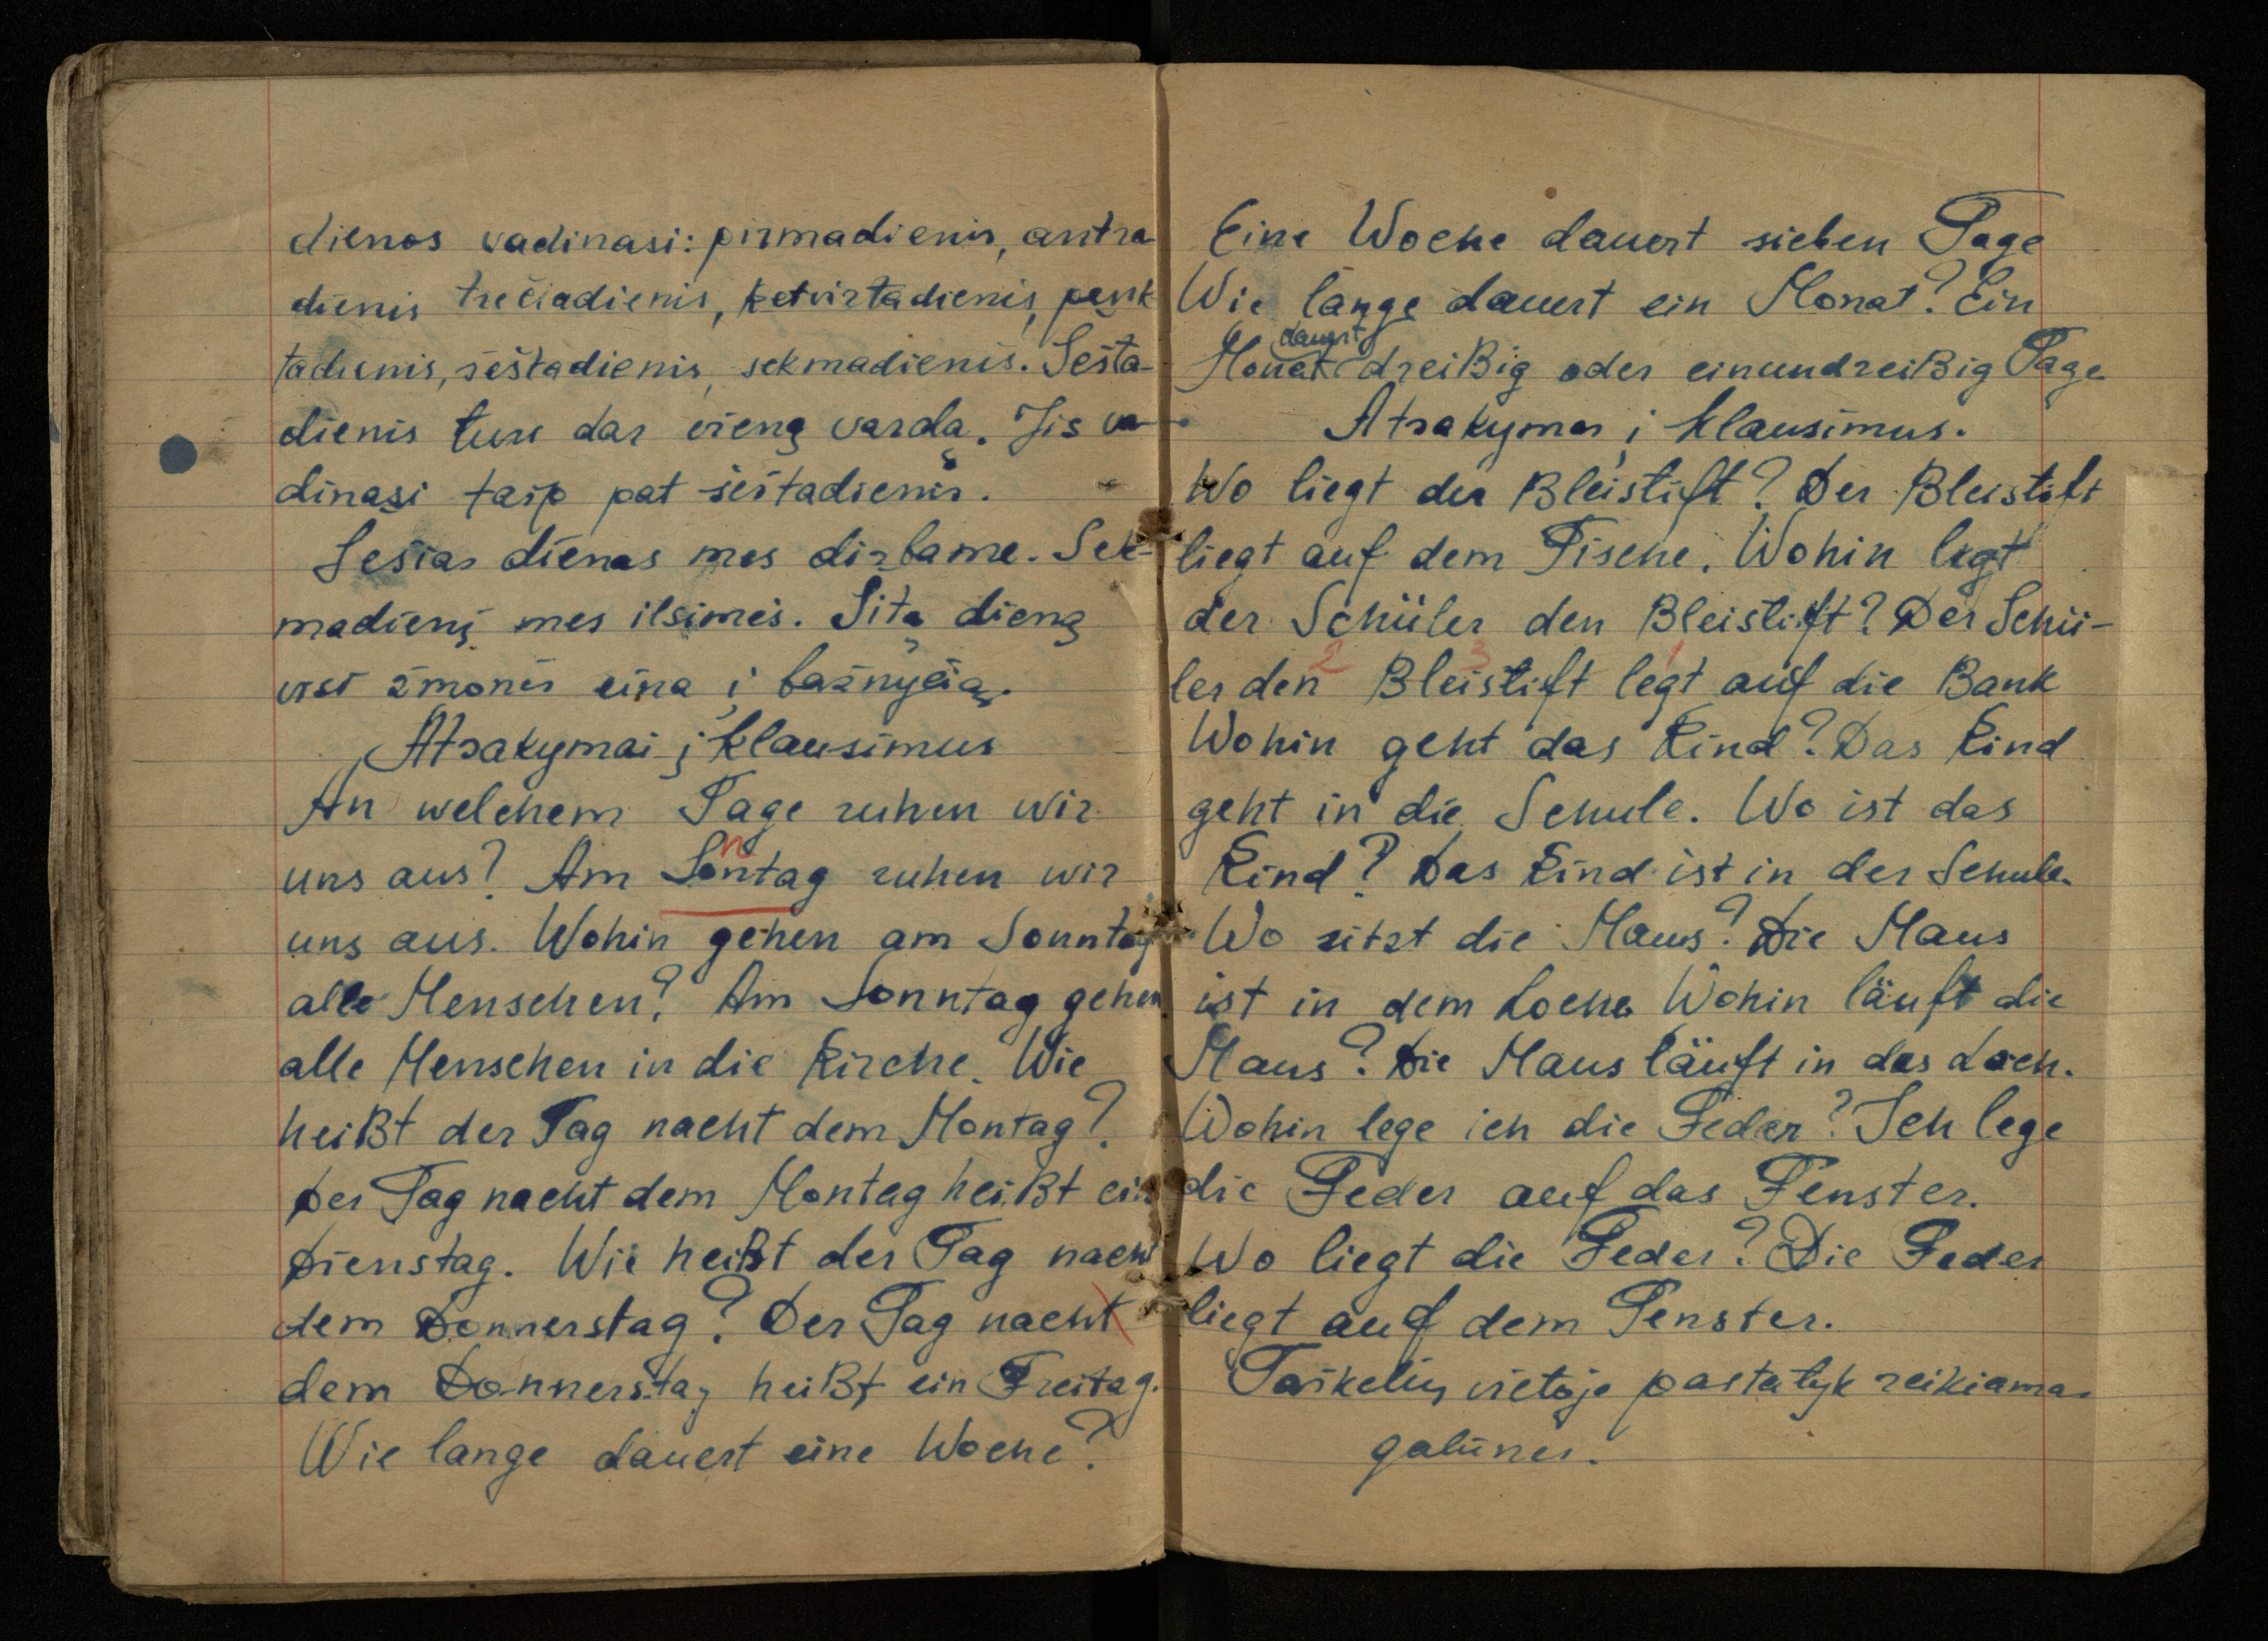 dienos vadinasi: pirmadienis, antra-
dienis trečiadienis, ketvirtadienis, penk-
tadienis, šeštadienis, sekmadienis. Šešta-
dienis turi dar vieną vardą. Jis va-
dinasi taip pat šeštadienis.
Šešias dienas mes dirbame. Sek-
madienį mes ilsimės. Šitą dieną
visi žmonės eina į bažnyčią.
Atsakymai į klausimus
An welchem Tage ruhen wir
uns aus? Am Sontag ruhen wir
n
uns aus. Wohin gehen am Sonntag
alle Menschen? Am Sonntag gehen
alle Menschen in die Kirche. Wie
heißt der Tag nacht dem Montag?
Der Tag nacht dem Montag heißt ein
Dienstag. Wie heißt der Tag nacht
dem Donnerstag? Der Tag nacht
dem Donnerstag heißt ein Freitag.
Wie lange dauert eine Woche?
Eine Woche dauert sieben Tage
Wie lange dauert ein Monat? Ein
dauert
Monat dreißig oder einundreißig Tage
Atsakymas į klausimus.
Wo liegt der Bleistift? Der Bleistift
liegt auf dem Tische. Wohin legt
der Schüler den Bleistift? Der Schü-
2 3 1
ler den Bleistift legt auf die Bank
Wohin geht das Kind? Das Kind
geht in die Schule. Wo ist das
Kind? Das Kind ist in der Schule.
Wo sitzt die Maus? Die Maus
ist in dem Loche Wohin läuft die
Maus? Die Maus läuft in das Loch.
Wohin lege ich die Feder? Ich lege
die Feder auf das Fenster.
Wo liegt die Feder? Die Feder
liegt auf dem Fenster.
Taškelių vietoje pastatyk reikiamas
galūnes.